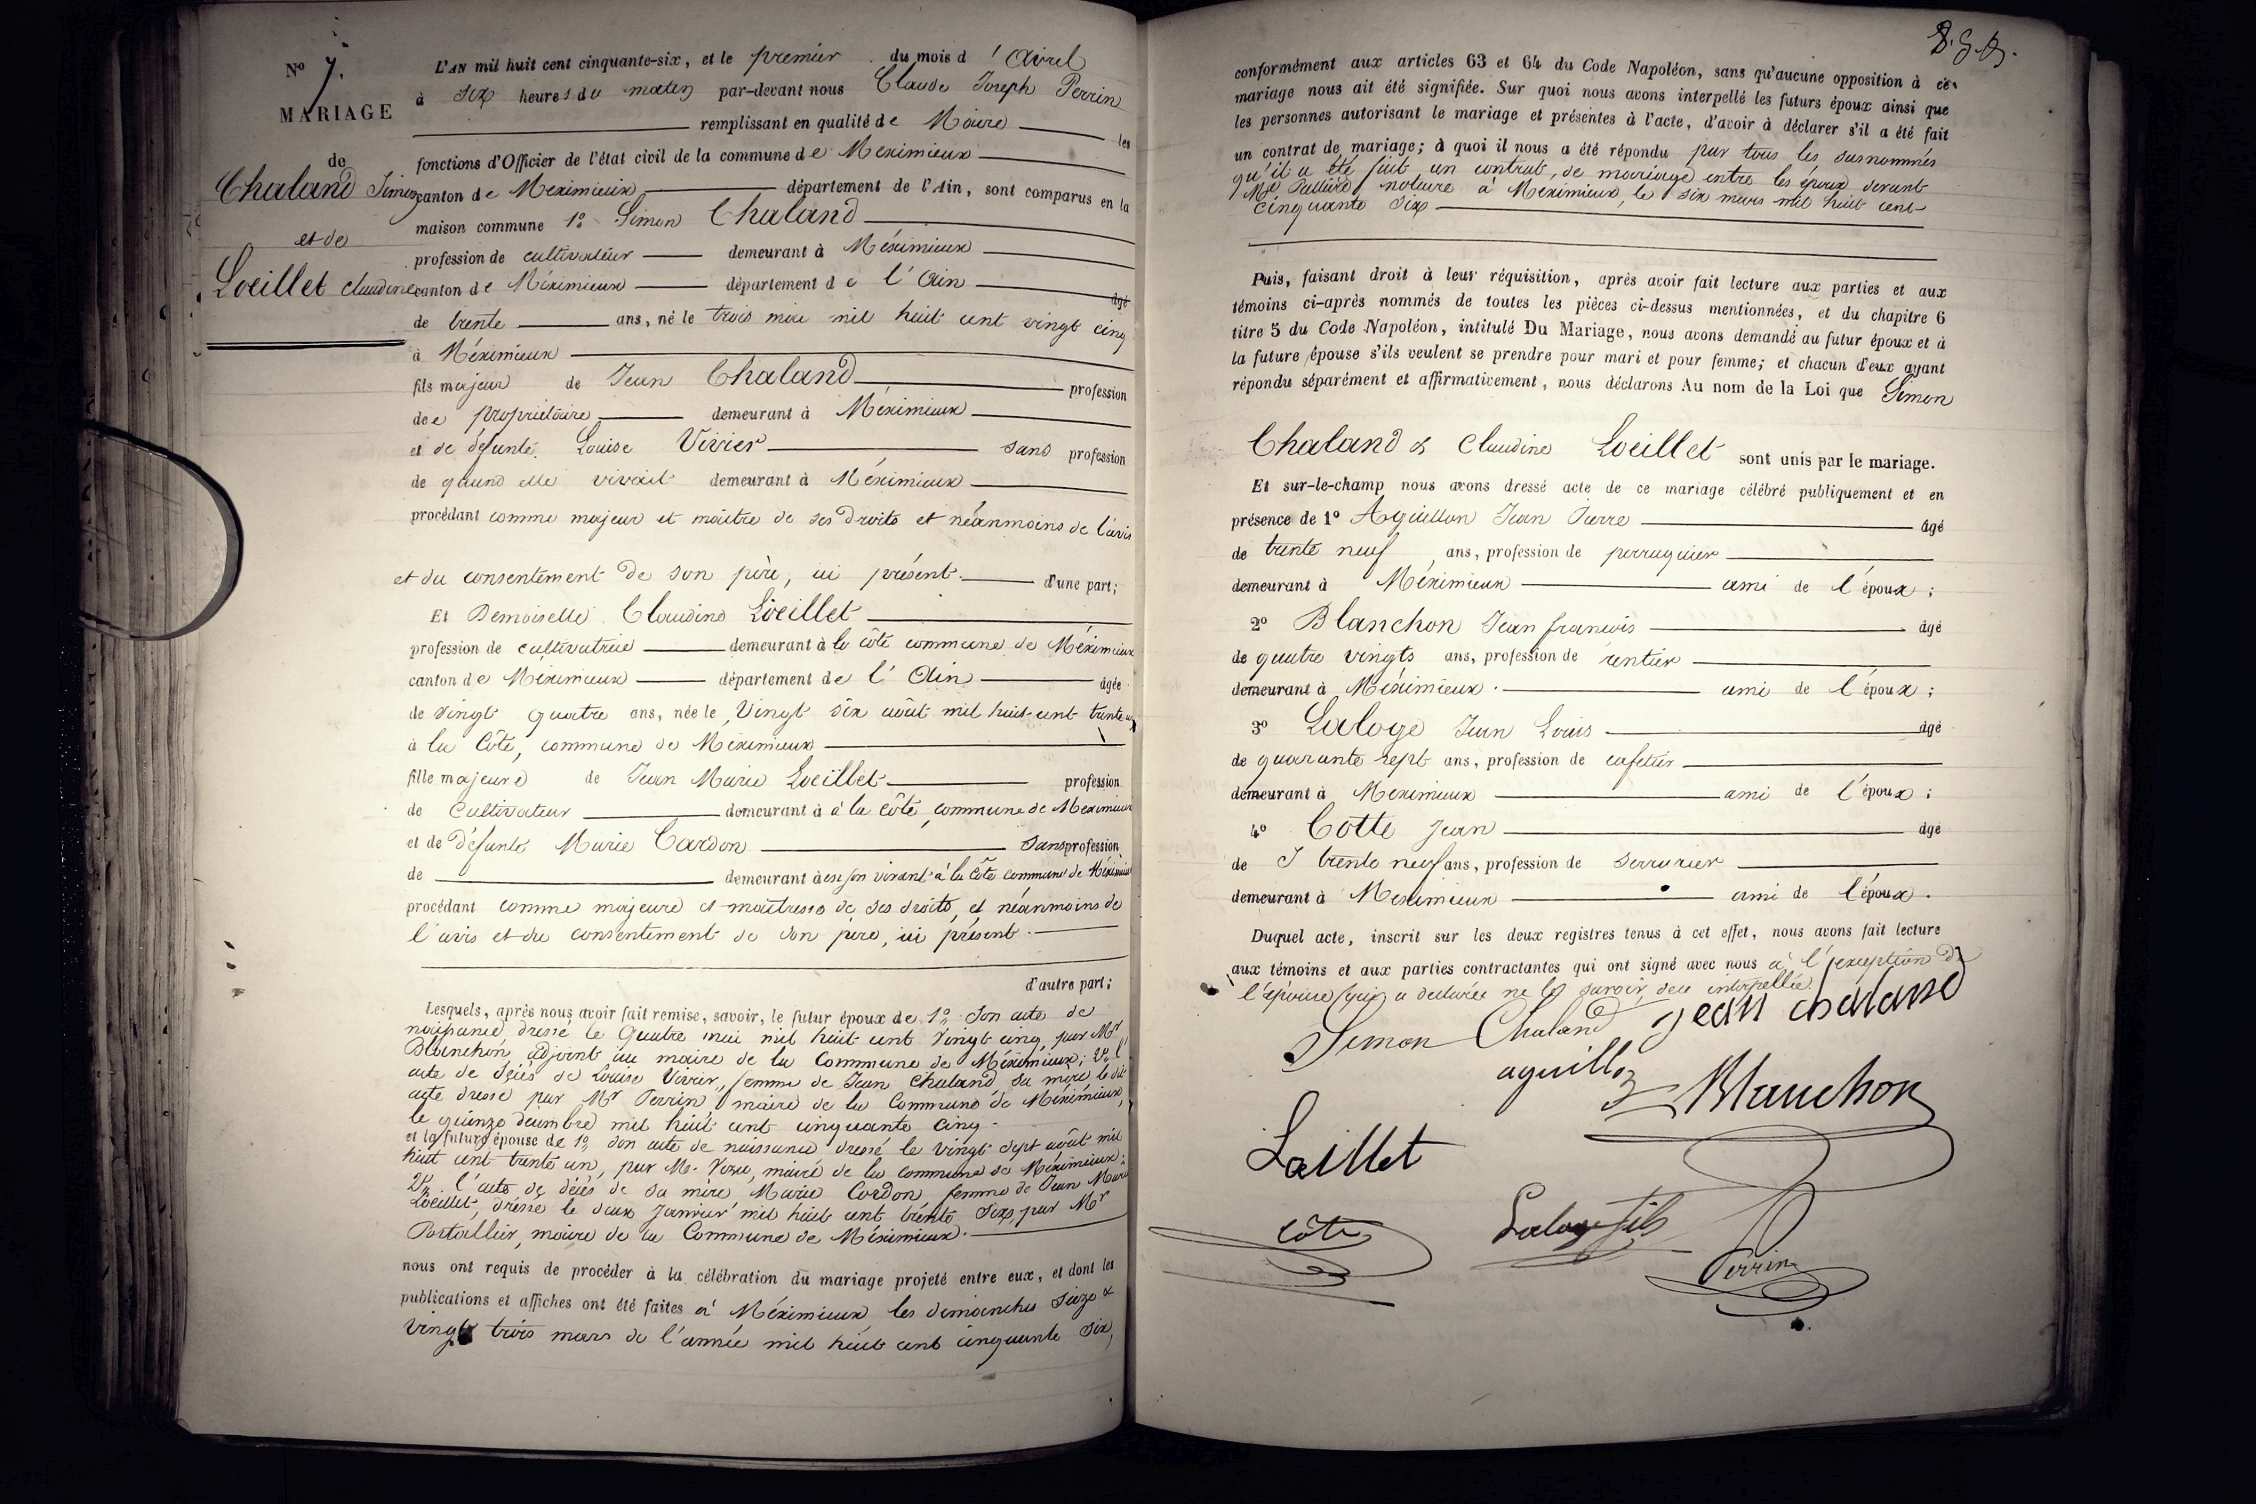 N° 7.
MARIAGE
de
Chaland Simon
et de
Loeillet Claudine
L'AN mil huit cent cinquante-six, et le premier du mois d'Avril
à six heures du matin par-devant nous Claude Joseph Perrin
remplissant en qualité de Maire les
fonctions d'Officier de l'état civil de la commune de Meximieux
canton de Meximieux département de l'Ain, sont comparus en la
maison commune 1° Simon Chaland
profession de cultivateur demeurant à Méximieux
canton de Méximieux département de l'Ain âgé
de trente ans, né le trois mai mil huit cent vingt cinq
à Méximieux
fils majeur de Jean Chaland profession
de propriétaire demeurant à Méximieux
et de défunte Louise Vivier sans profession
de quand elle vivait demeurant à Méximieux
procédant comme majeur et maître de ses droits et néanmoins de l'avis
et du consentement de son père, ici présent. d'une part;
Et Demoiselle Claudine Loeillet
profession de cultivatrice demeurant à la côte commune de Méximieux
canton de Méximieux département de l'Ain âgée
de vingt quatre ans, née le Vingt six août mil huit cent trente un
à la Côte, commune de Méximieux
fille majeure de Jean Marie Loeillet profession
de Cultivateur demeurant à à la Côte, commune de Meximieux
et de Défunte Marie Cardon Sans profession
de demeurant à en son vivant à la Côte commune de Méximieux
procédant comme majeure et maîtresse de ses droits, et néanmoins de
l'avis et du consentement de son père, ici présent.
d'autre part;
Lesquels, après nous avoir fait remise, savoir, le futur époux de 1° Son acte de
naissance dressé le Quatre mai mil huit cent Vingt cinq, par Mr
Blanchon adjoint au maire de la Commune de Méximieux; 2° l'
acte de décès de Louise Vivier, femme de Jean Chaland, sa mère le dit
acte dressé par Mr Perrin, maire de la Commune de Méximieux,
le quinze décembre mil huit cent cinquante cinq.
et la future épouse de 1° son acte de naissance dressé le vingt sept août mil
huit cent trente un, par Mr. maire de la commune de Méximieux;
2° l'acte de décès de sa mère Marie Cardon, femme de Jean Marie
Loeillet, dressé le deux Janvier mil huit cent trente Six, par Mr
Portallier, maire de la Commune de Méximieux.
nous ont requis de procéder à la célébration du mariage projeté entre eux, et dont les
publications et affiches ont été faites à Méximieux les dimanches Seize &
vingt trois mars de l'année mil huit cent cinquante six,
conformément aux articles 63 et 64 du Code Napoléon, sans qu'aucune opposition à ce
mariage nous ait été signifiée. Sur quoi nous avons interpellé les futurs époux ainsi que
les personnes autorisant le mariage et présentes à l'acte, d'avoir à déclarer s'il a été fait
un contrat de mariage; à quoi il nous a été répondu par tous les susnommés
qu'il a été fait un contrat de mariage entre les époux devant
Me notaire à Méximieux, le six mars mil huit cent
cinquante six
Puis, faisant droit à leur réquisition, après avoir fait lecture aux parties et aux
témoins ci-après nommés de toutes les pièces ci-dessus mentionnées, et du chapitre 6
titre 5 du Code Napoléon, intitulé Du Mariage, nous avons demandé au futur époux et à
la future épouse s'ils veulent se prendre pour mari et pour femme; et chacun d'eux ayant
répondu séparément et affirmativement, nous déclarons Au nom de la Loi que Simon
Chaland & Claudine Loeillet sont unis par le mariage.
Et sur-le-champ nous avons dressé acte de ce mariage célébré publiquement et en
présence de 1° Aguillon Jean Pierre âgé
de trente neuf ans, profession de perruquier
demeurant à Méximieux ami de l'époux;
2° Blanchon Jean francois âgé
de quatre vingts ans, profession de rentier
demeurant à Méximieux. ami de l'époux;
3° Laloge Jean Louis âgé
de quarante sept ans, profession de cafetier
demeurant à Meximieux ami de l'époux;
4° Cotte Jean âgé
de trente neuf ans, profession de serrurier
demeurant à Meximieux ami de l'époux.
Duquel acte, inscrit sur les deux registres tenus à cet effet, nous avons fait lecture
aux témoins et aux parties contractantes qui ont signé avec nous à l'exception de
l'épouse qui a déclaré ne le savoir, de ce interpellée.
Simon Chaland Jean chaland
aguillon Blanchon
Loeillet
côte Laloge fils Perrin